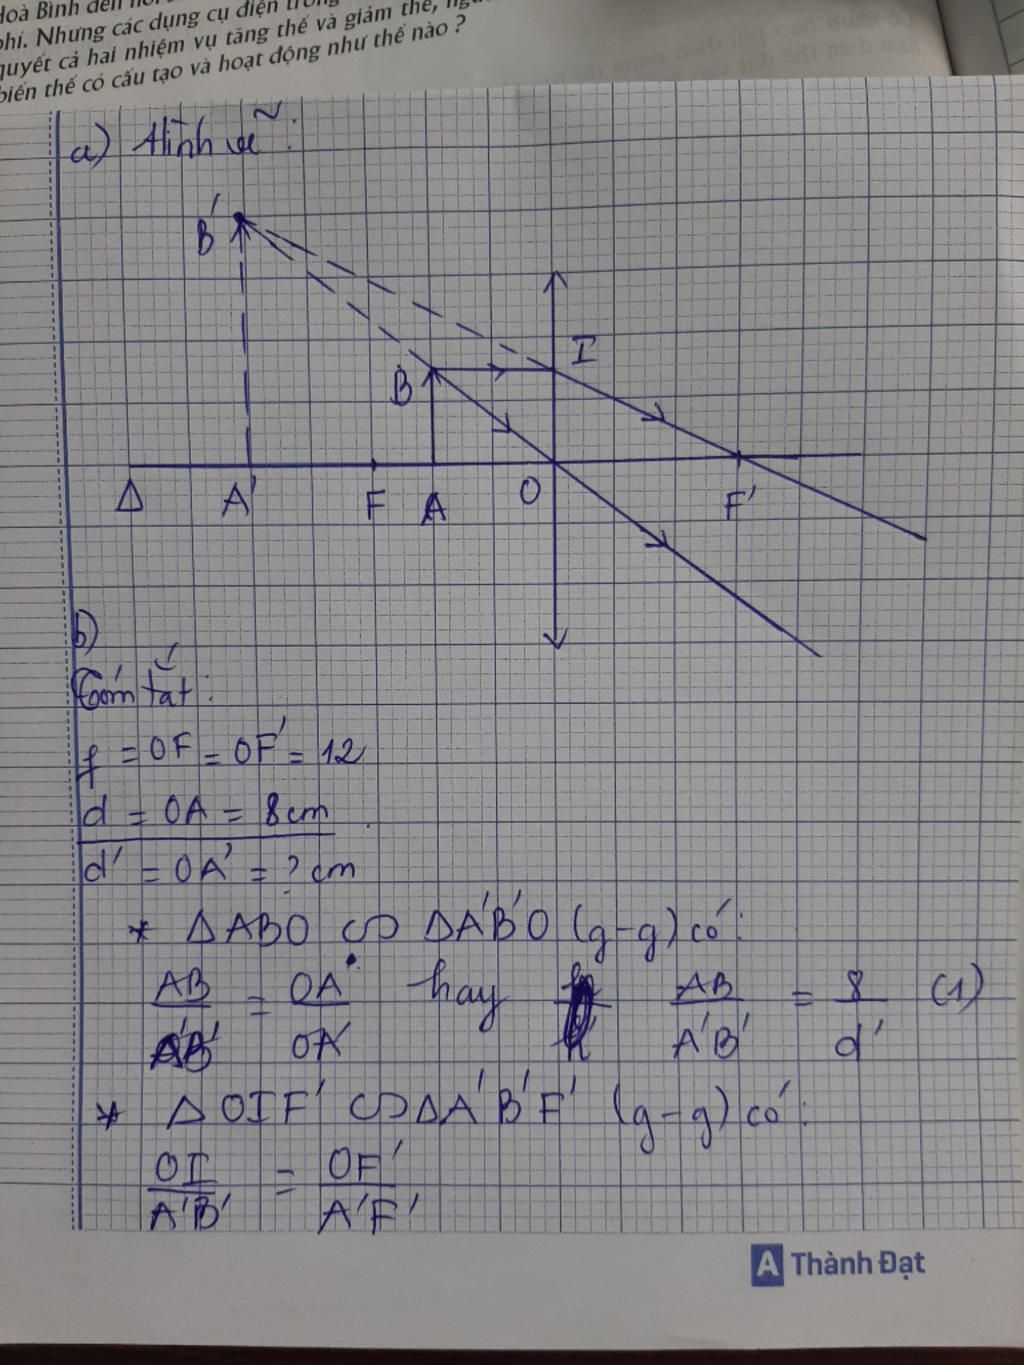 Hoà Bình đến
phí. Nhưng các dụng cụ điện trong
quyết cả hai nhiệm vụ tăng thế và giảm thế,
biến thế có cấu tạo và hoạt động như thế nào ?
a) Hình vẽ:
B'
I
B
Δ A' F A O F'
b)
Tóm tắt:
f = OF = OF' = 12
d = OA = 8cm
d' = OA' = ? cm
* ΔABO ∽ ΔA'B'O (g-g) có:
AB/A'B' = OA/OA' hay AB/A'B' = 8/d' (1)
* ΔOIF' ∽ ΔA'B'F' (g-g) có:
OI/A'B' = OF'/A'F'
A Thành Đạt